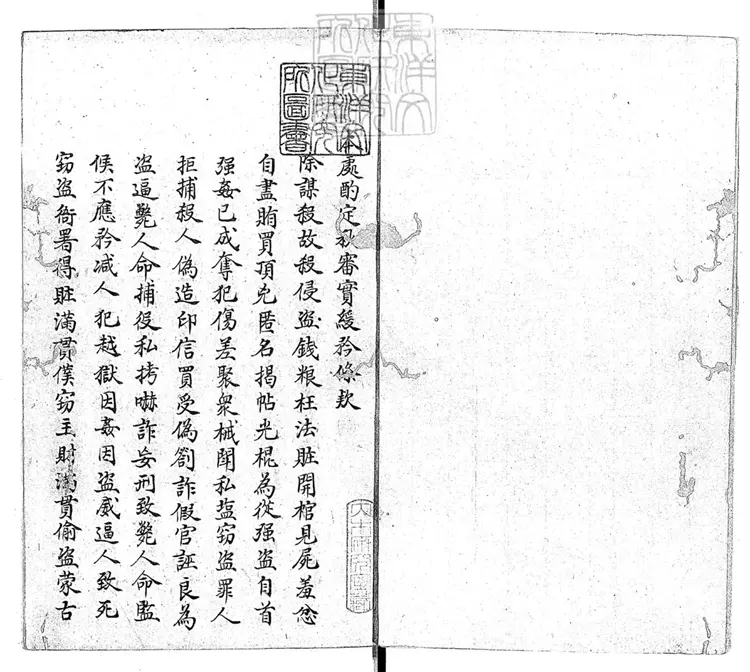 本處酌定秋審實緩矜條款
除謀殺故殺侵盜錢粮枉法賍開棺見屍羞忿
自盡賄買頂兇匿名揭帖光棍為從强盜自首
强姦已成奪犯傷差聚衆械鬪私塩窃盜罪人
拒捕殺人偽造印信買受偽劄詐假官誣良為
盜逼斃人命捕役私拷嚇詐妄刑致斃人命監
候不應矜減人犯越獄因姦因盜威逼人致死
窃盜衙署得賍滿貫僕窃主財滿貫偷盜蒙古
東洋文化研究所圖書